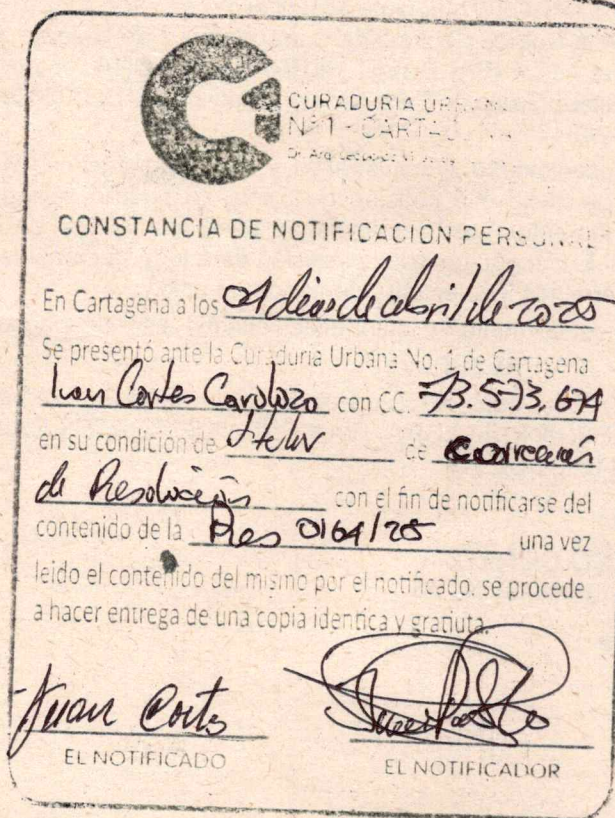 CURADURIA URBANA
Nº 1 - CARTAGENA
CONSTANCIA DE NOTIFICACION PERSONAL
En Cartagena a los 01 dias de abril de 2025
Se presentó ante la Curaduria Urbana No. 1 de Cartagena
Cortes Cardozo con CC. 73.573.674
en su condición de titular de
de Resolución con el fin de notificarse del
contenido de la Res 0164/25 una vez
leido el contenido del mismo por el notificado, se procede
a hacer entrega de una copia identica y gratiuta.
Juan Cortes
EL NOTIFICADO
EL NOTIFICADOR